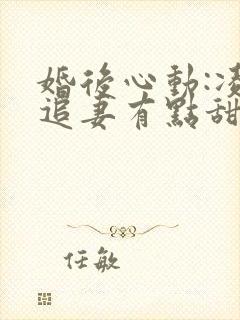 婚後心動:凌
追妻有點甜
任敏